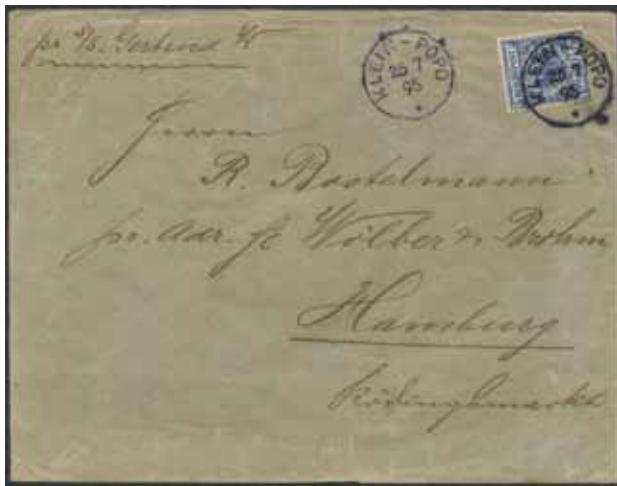 pr S/S. Gertrud W
KLEIN-POPO
25 7
95
KLEIN-POPO
25 7
95
Herrn
R. Bostelmann
pr. Adr. Wölber & Brohm
Hamburg
Rödingsmarkt